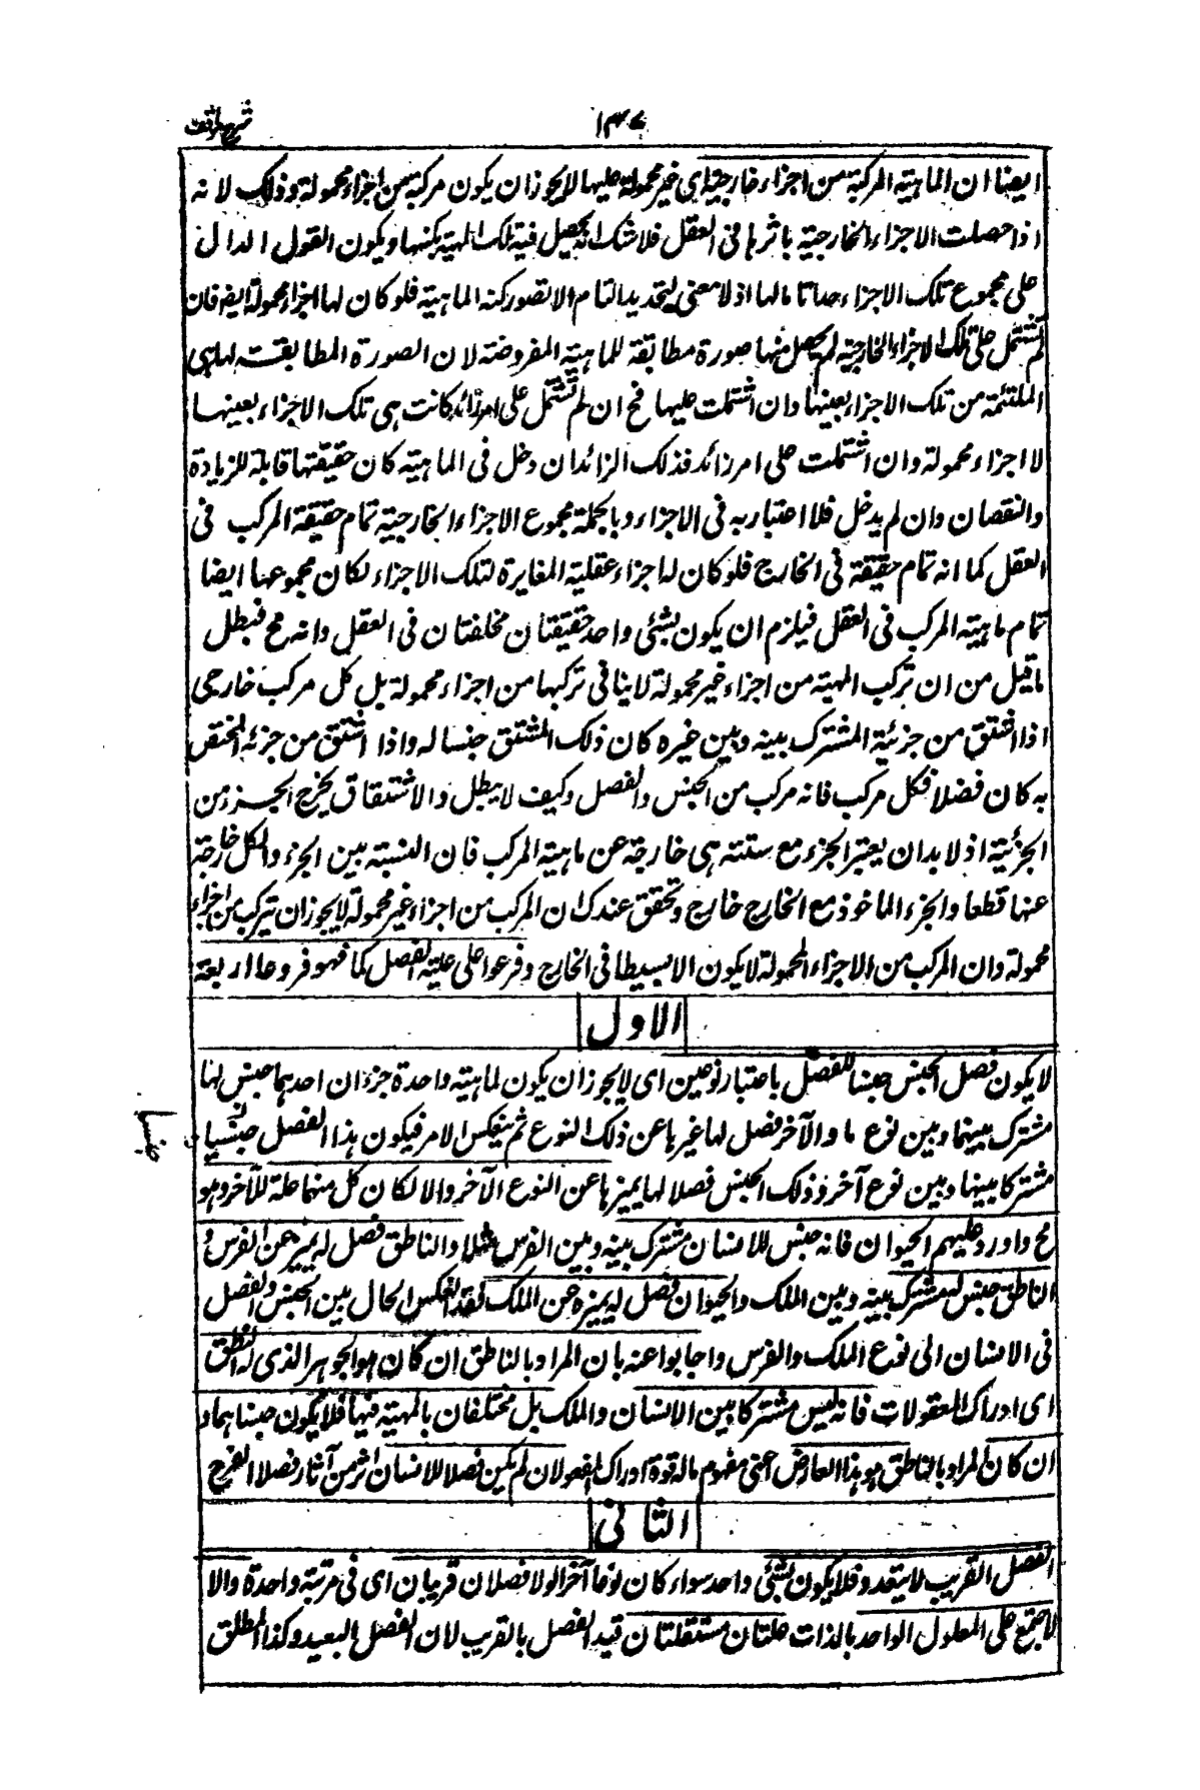 ١٣٤٧
شرح مواقف
ايضا ان الماهية المركبة من اجزاء خارجية اى غير محمولة عليها لا يجوز ان يكون مركبة من اجزاء محمولة وذلك لانه
اذا حصلت الاجزاء الخارجية باثرها فى العقل فلا شك انه يحصل فيه تلك المهية بكنهها ويكون القول الدال
على مجموع تلك الاجزاء حدا تاما لها اذ لا معنى للتحديد التام الا تصور كنه الماهية فلو كان لها اجزاء محمولة ايضا فان
لم تشتمل على تلك الاجزاء الخارجية لم يحصل منها صورة مطابقة للماهية المفروضة لان الصورة المطابقة لها هى
الملتئمة من تلك الاجزاء بعينها وان اشتملت عليها فح ان لم تشتمل على امر زائد كانت هى تلك الاجزاء بعينها
لا اجزاء محمولة وان اشتملت على امر زائد فذلك الزائد ان دخل فى الماهية كان حقيقتها قابلة للزيادة
والنقصان وان لم يدخل فلا اعتبار به فى الاجزاء وبالجملة مجموع الاجزاء الخارجية تمام حقيقة المركب فى
العقل كما انه تمام حقيقة فى الخارج فلو كان له اجزاء عقلية المغايرة لتلك الاجزاء لكان مجموعها ايضا
تمام ماهية المركب فى العقل فيلزم ان يكون لشئى واحد حقيقتان مخلفتان فى العقل وانه مح فبطل
ما قيل من ان تركب المهية من اجزاء غير محمولة لا ينافى تركبها من اجزاء محمولة بل كل مركب خارجى
اذا اشتق من جزئية المشترك بينه وبين غيره كان ذلك المشتق جنسا له واذا اشتق من جزئه المختص
به كان فضلا فكل مركب فانه مركب من الجنس والفصل وكيف لا يبطل والاشتقاق يخرج الجزء من
الجزئية اذ لا بد ان يعتبر الجزء مع ستته هى خارجة عن ماهية المركب فان النسبة بين الجزء والكل خارجة
عنها قطعا والجزء الماخوذ مع الخارج خارج وتحقق عندك ان المركب من اجزاء غير محمولة لا يجوز ان تيركب من اجزاء
محمولة وان المركب من الاجزاء المحمولة لا يكون الا بسيطا فى الخارج وفرعوا على علية الفصل كما فهو فروعا اربعة
الاول
لا يكون فصل الجنس جنسا للفصل باعتبار نوعين اى لا يجوز ان يكون لماهية واحدة جزءان احدهما جنس لها
مشترك بينها وبين نوع ما والآخر فصل لها غيرها عن ذلك النوع ثم ينعكس الامر فيكون هذا الفصل جنسيا
جنسا
مشتركا بينها وبين نوع آخر وذلك الجنس فصلا لها يميزها عن النوع الآخر والا لكان كل منهما علة للآخر وهو
مح واورد عليهم الحيوان فانه جنس للانسان مشترك بينه وبين الفرس مثلا والناطق فصل له يميز عن الفرس و
الناطق جنس له مشترك بينه وبين الملك والحيوان فصل له يميزه عن الملك فقد انعكس الحال بين الجنس والفصل
فى الانسان الى نوع الملك والفرس واجابوا عنه بان المراد بالناطق ان كان هو الجوهر الذى له النطق
اى ادراك المعقولات فانه ليس مشتركا بين الانسان والملك بل مختلفان بالمهية فيها فلا يكون جنسا لهما و
ان كان المراد بالناطق هو هذا العارض اعنى مفهوم ماله قوة ادراك المعقولات لم يكن فصلا للانسان اثر من آثار فصلا الفرج
الثانى
الفصل القريب لا يتعدد فلا يكون لشئى واحد سواء كان نوعا آخر اولا فصلان قريبان اى فى مرتبة واحدة والا
لاجتمع على المعلول الواحد بالذات علتان مستقلتان قيد الفصل بالقريب لان الفصل البعيد وكذا المطلق